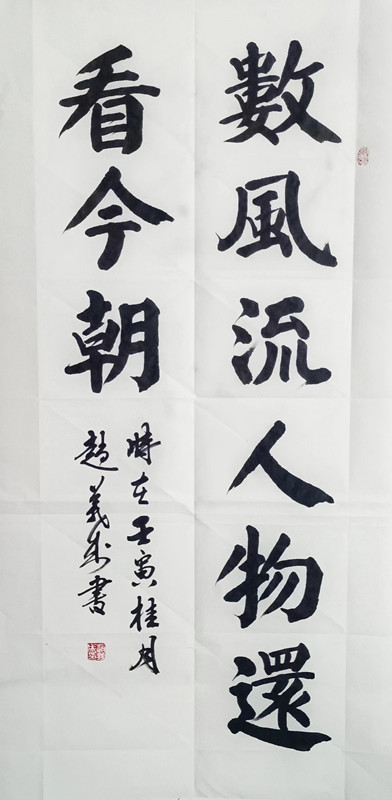 數風流人物還
看今朝
時在壬寅桂月
趙義書